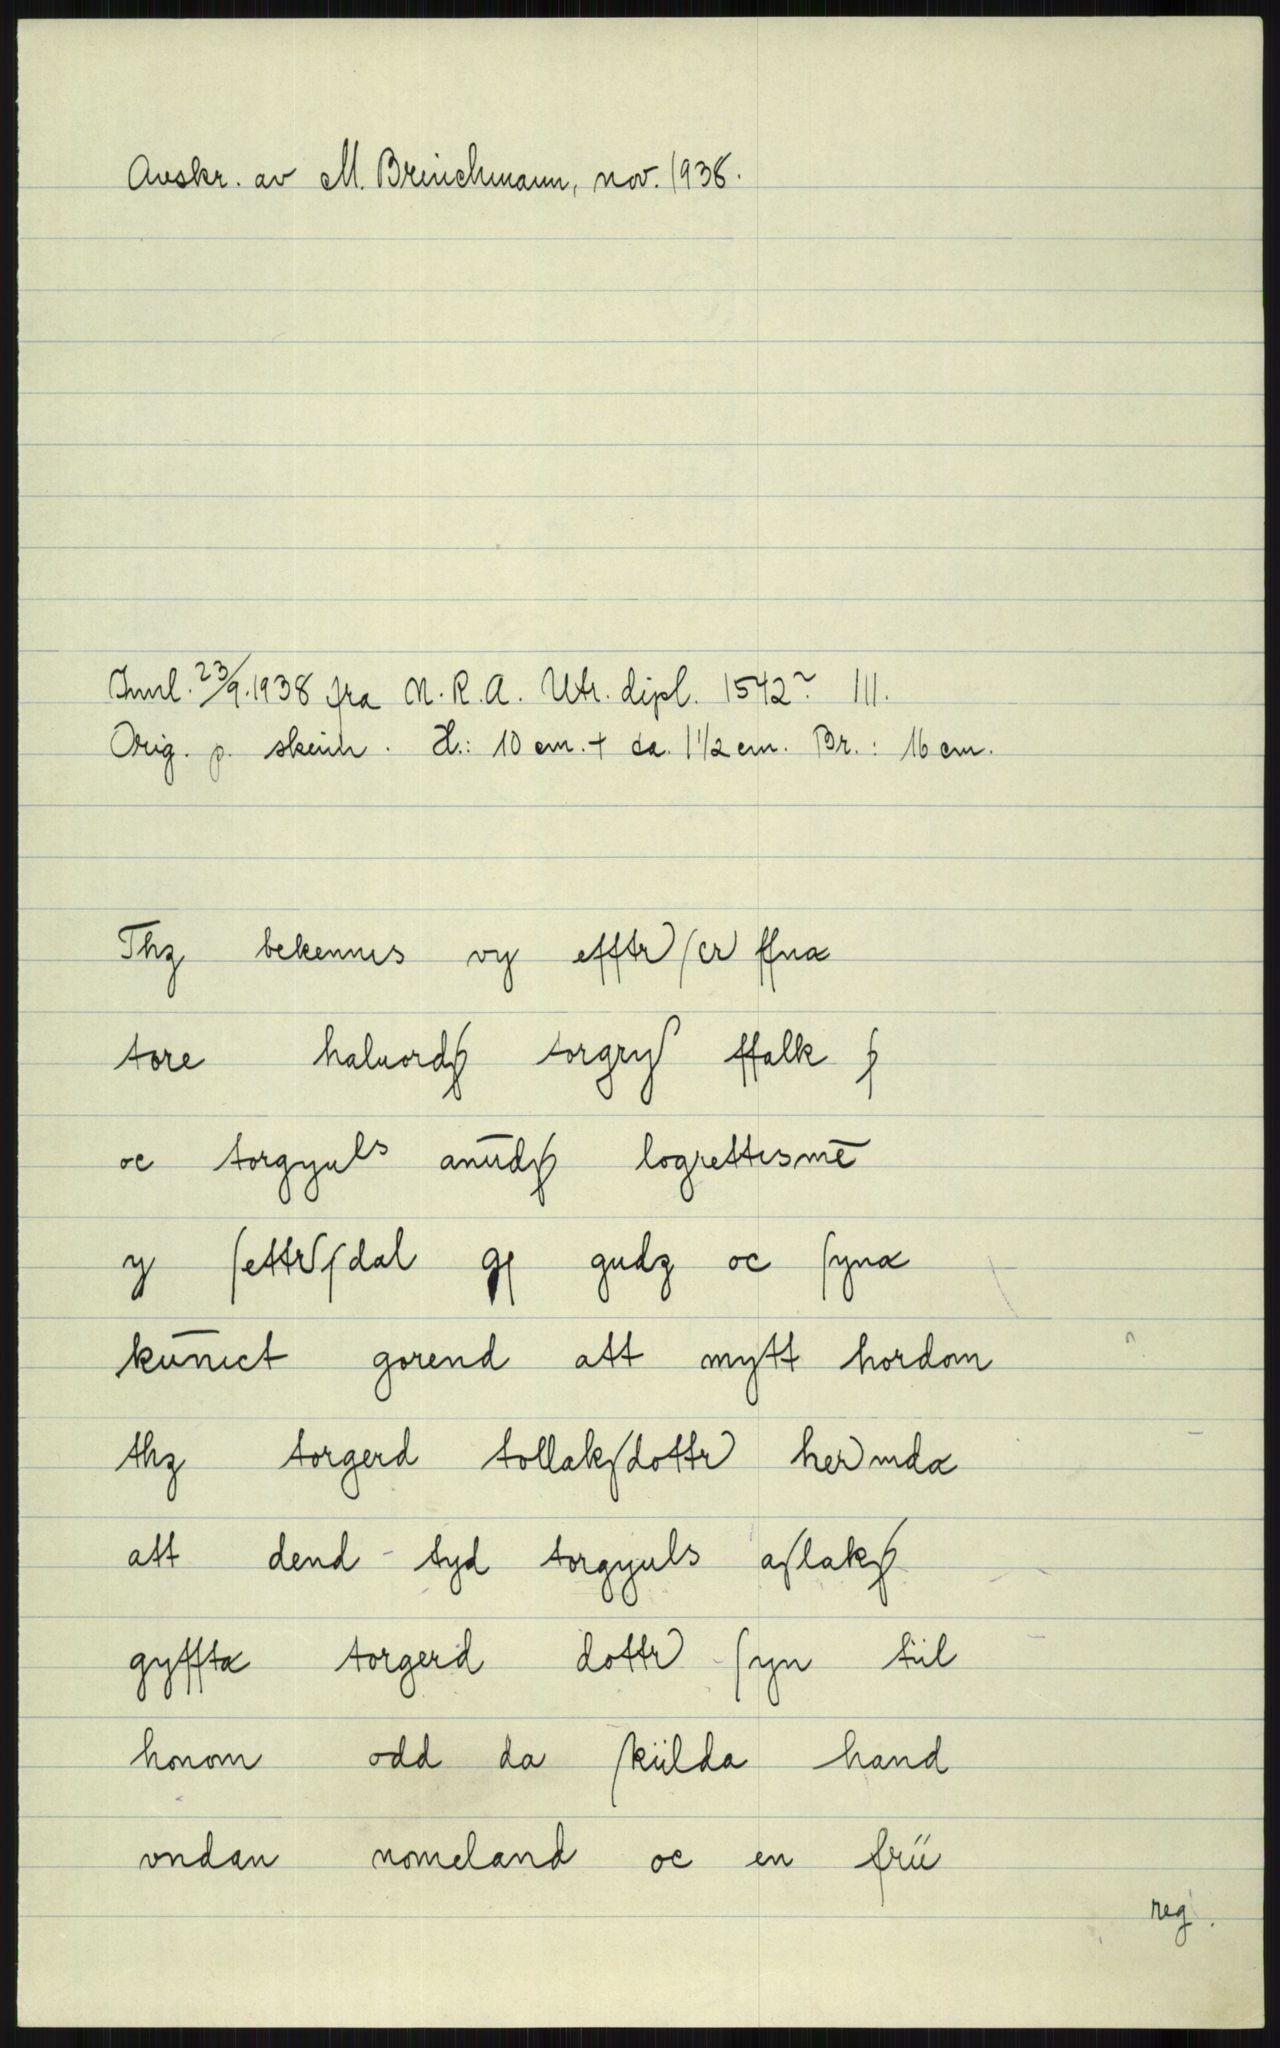 Avskr. av M. Brinchmann, nov. 1938.
Innl. 23/9.1938 fra N.R.A. Utr. dipl. 1542? III.
Orig. p. skinn. H.: 10 cm. + ca. 1 1/2 cm. Br.: 16 cm.
Thꝫ bekennes vy efftr ſcr ffna
tore haluordß torgryſ ffalk ß
oc torgyuls anūdß logrettismē
y ſettrſdal gſ gudꝫ oc ſyna
kūnict gorend att mytt hordom
thꝫ torgerd tollakſdottr her mda
att dend tyd torgyuls aſlakß
gyffta torgerd dottr ſyn tiil
honom odd da ſkiilda hand
vndan nomeland oc en frii
reg.